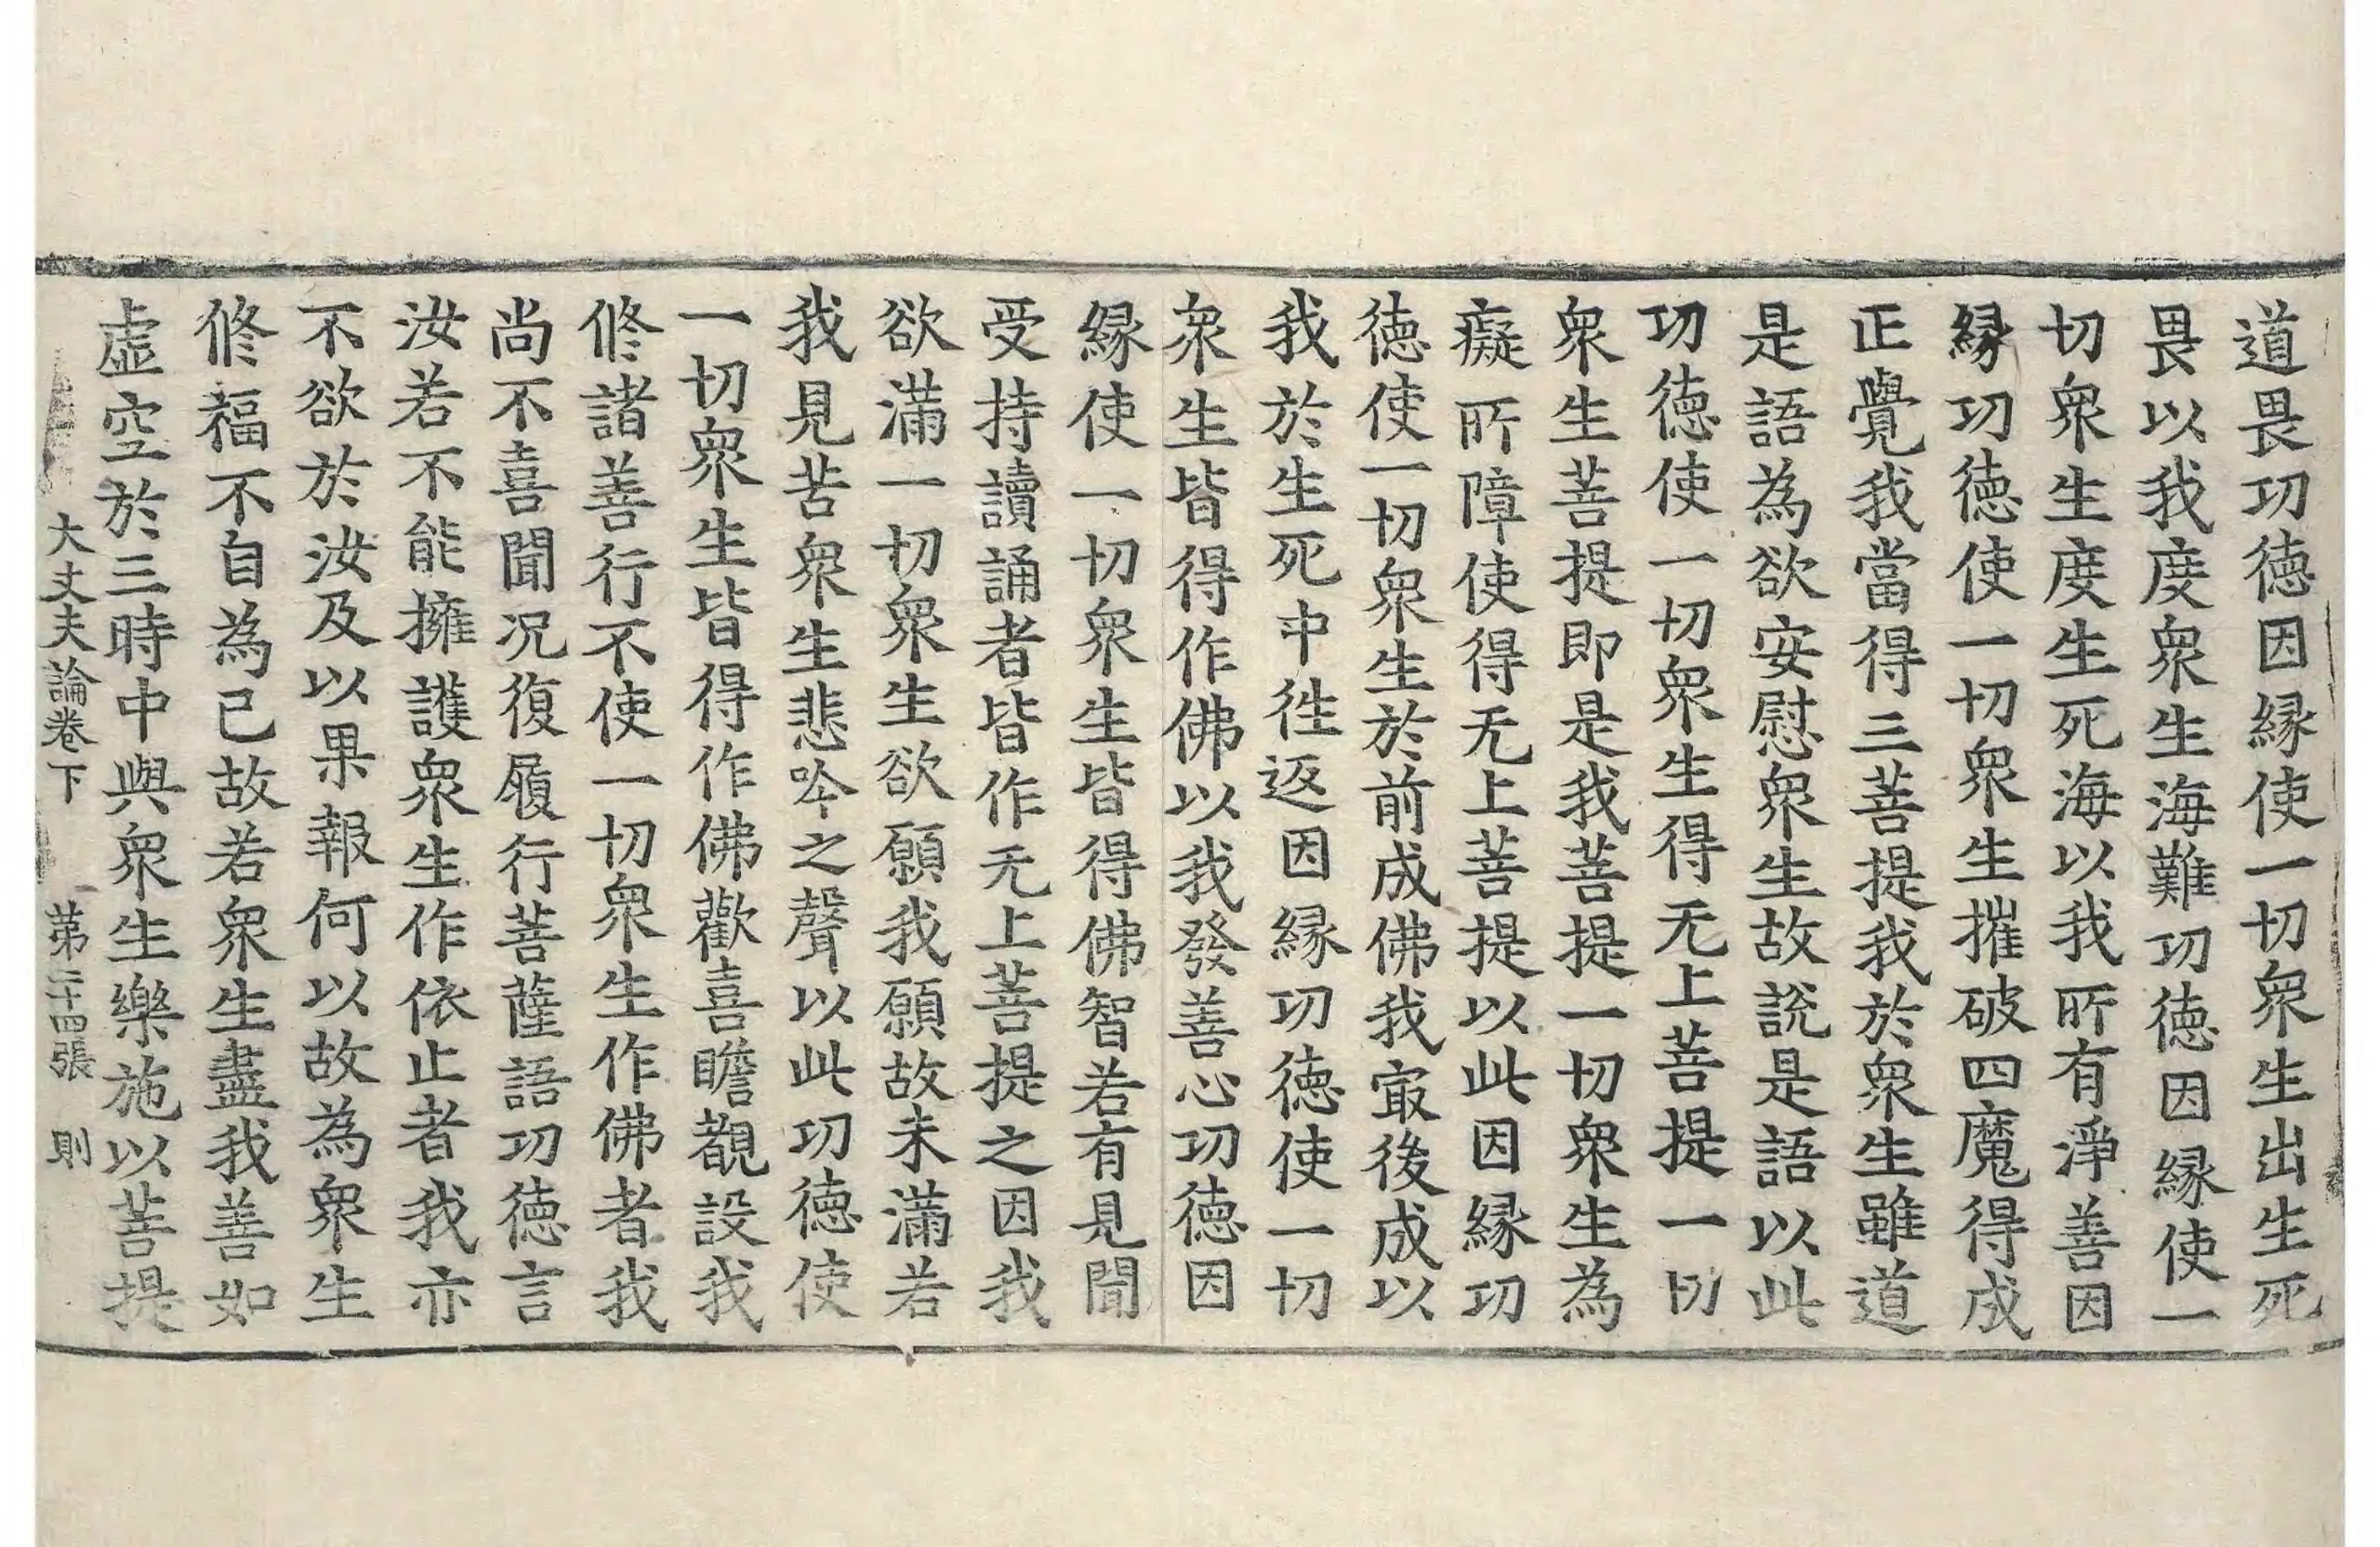 道畏功德因緣使一切衆生出生死
畏以我度衆生海難功德因緣使一
切衆生度生死海以我所有淨善因
緣功德使一切衆生摧破四魔得成
正覺我當得三菩提我於衆生雖道
是語為欲安慰衆生故說是語以此
功德使一切衆生得无上菩提一切
衆生菩提即是我菩提一切衆生為
癡所障使得无上菩提以此因緣功
德使一切衆生於前成佛我㝡後成以
我於生死中徃返因緣功德使一切
衆生皆得作佛以我發善心功德因
緣使一切衆生皆得佛智若有見聞
受持讀誦者皆作无上菩提之因我
欲滿一切衆生欲願我願故未滿若
我見苦衆生悲吟之聲以此功德使
一切衆生皆得作佛歡喜瞻覩設我
修諸善行不使一切衆生作佛者我
尚不喜聞况復履行菩薩語功德言
汝若不能擁護衆生作依止者我亦
不欲於汝及以果報何以故為衆生
修福不自為己故若衆生盡我善如
虛空於三時中與衆生樂施以菩提
大丈夫論卷下 第二十四張 則